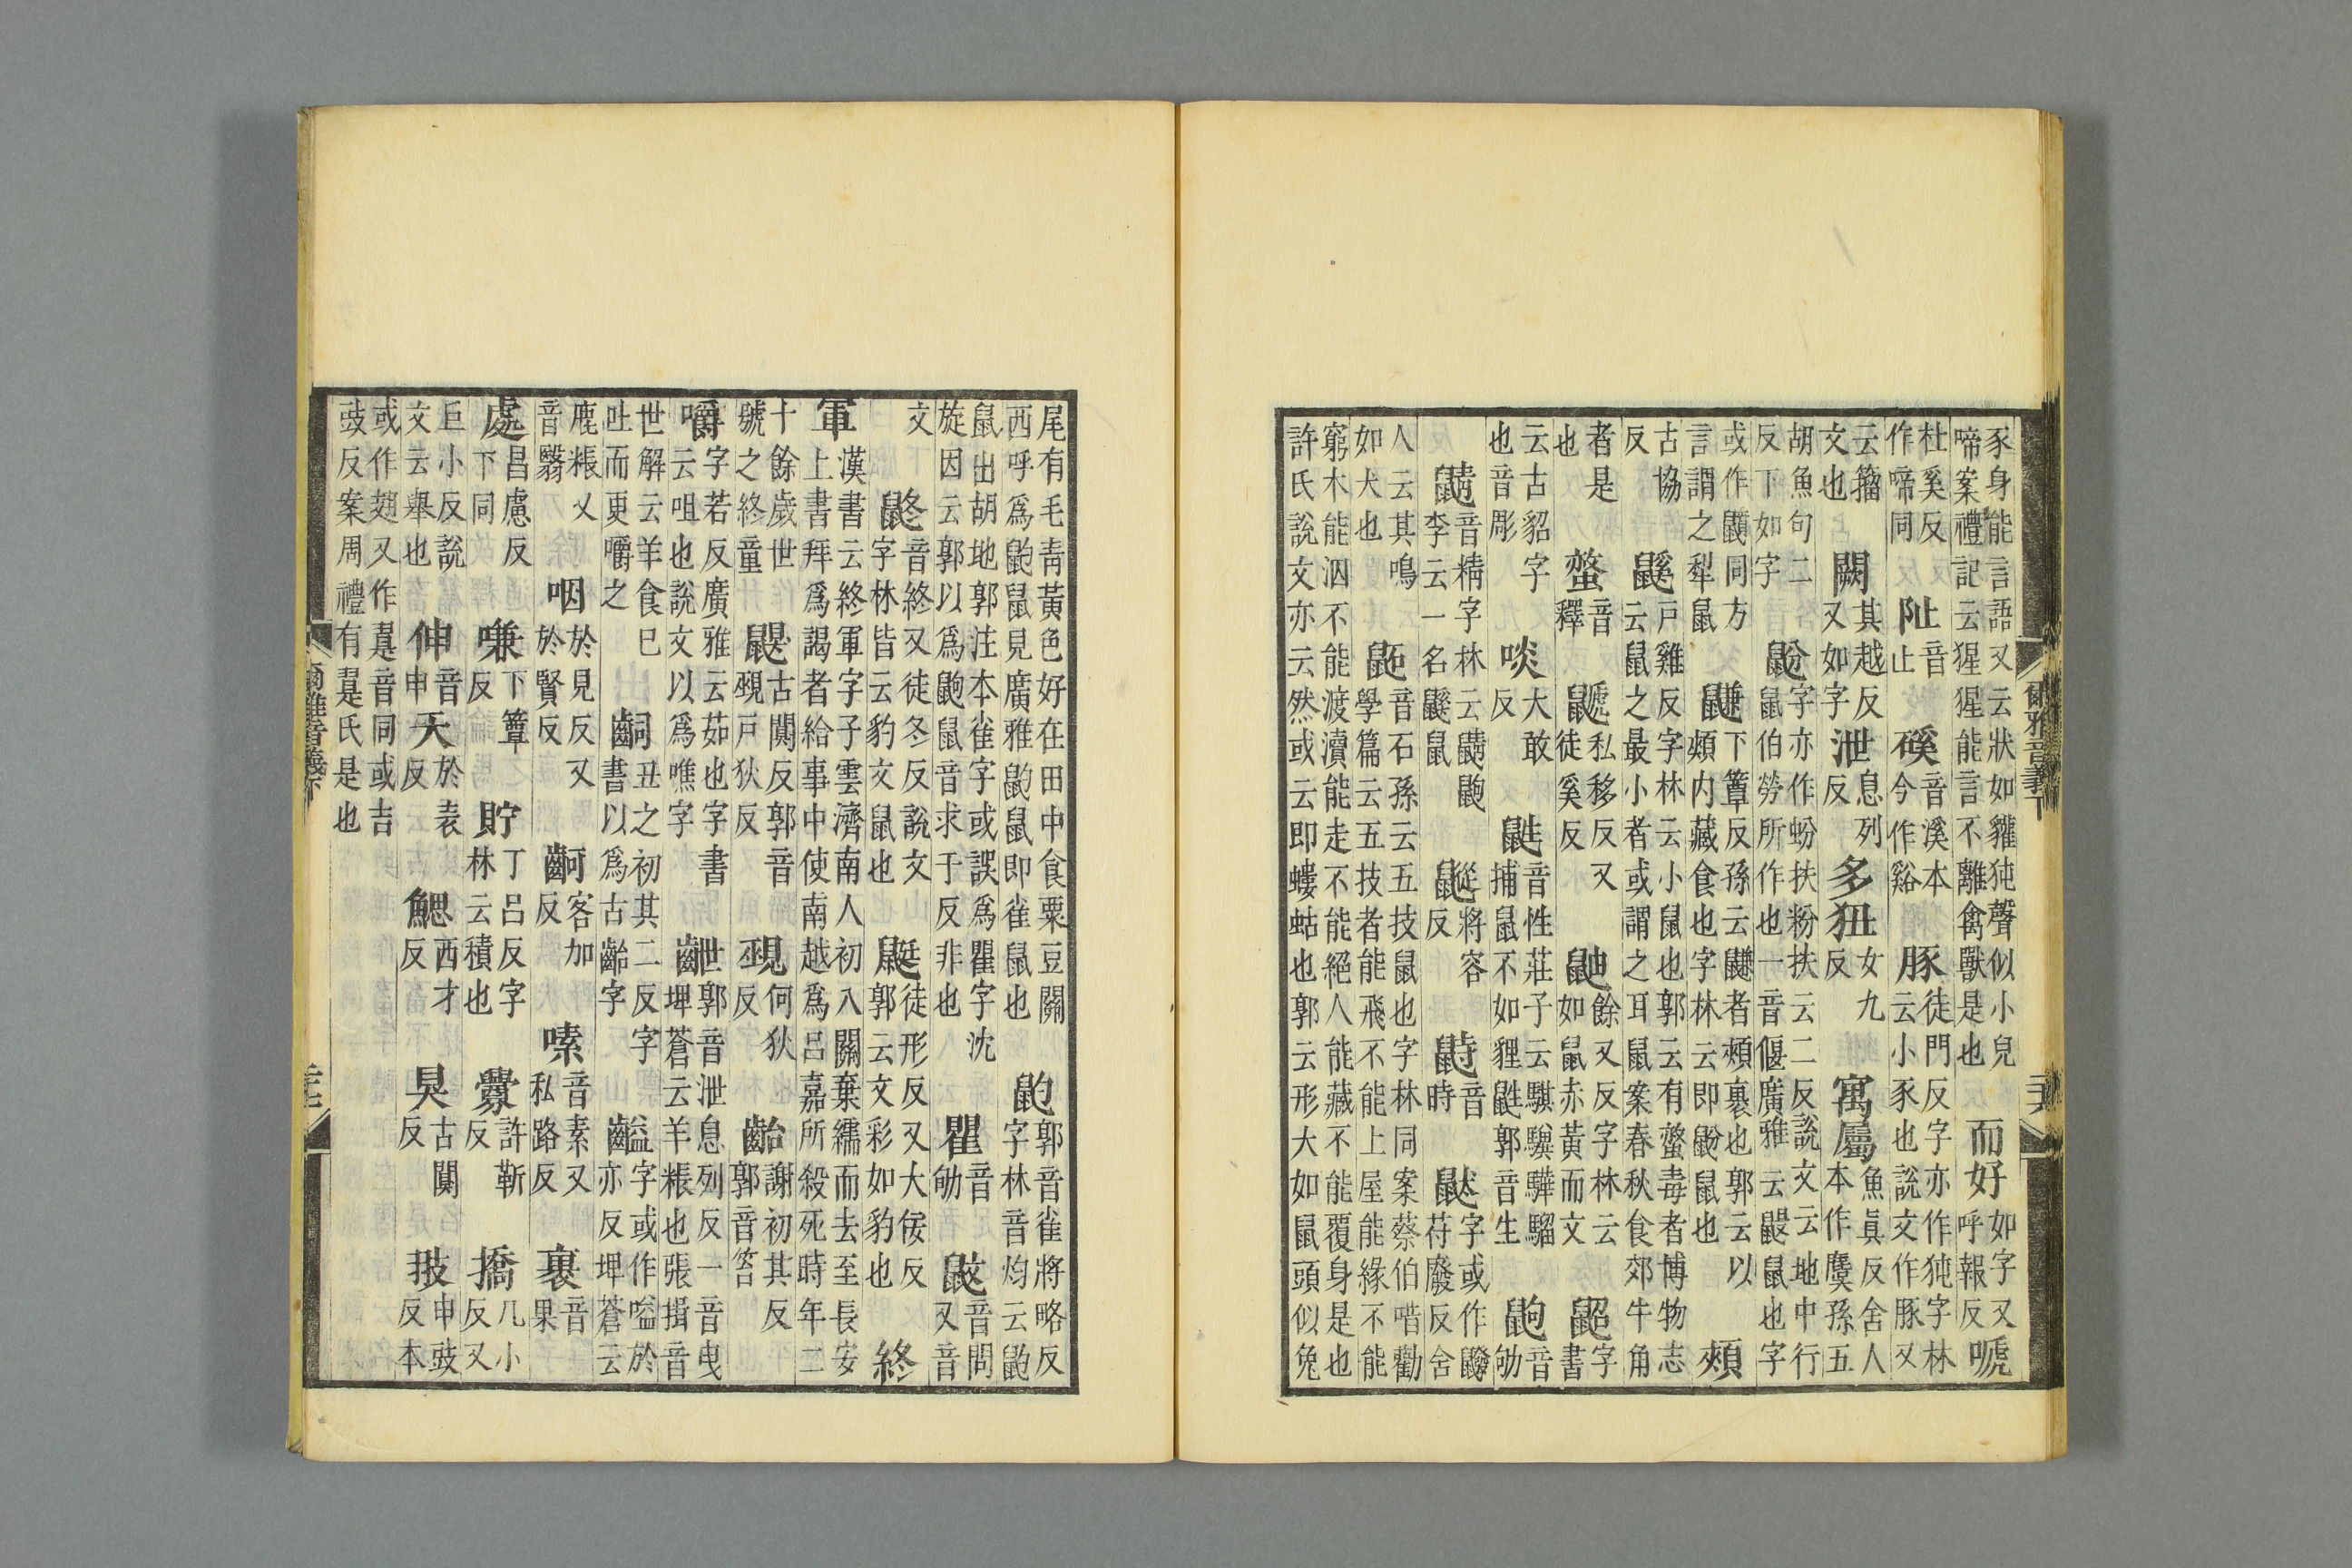 豕身能言語又云狀如貛㹠聲似小兒啼案禮記云猩猩能言不離禽獸是也 而好如字又呼報反 嗁
杜奚反作啼同 阯音止 磎音溪本今作谿 豚徒門反字亦作㹠字林云小豕也說文作豚又
云籀文也 闕其越反又如字 泄息列反 多狃女九反 寓屬魚具反舍人本作麌孫五
胡魚句二反下如字 鼢字亦作蚡扶粉扶云二反說文云地中行鼠伯勞所作也一音偃廣雅云鼹鼠也字
或作鼸同方言謂之犁鼠 鼸下簟反孫云鼸者頰裏也郭云以頰内藏食也字林云即鼢鼠也 頰
古協反 鼷戶雞反字林云小鼠也郭云有螫毒者博物志云鼠之最小者或謂之耳鼠案春秋食郊牛角
者是也 螫音釋 鼶私移反又徒奚反 鼬餘又反字林云如鼠赤黃而文 鼦字書
云古貂字也音彫 啖大敢反 鼪音性莊子云騏驥驊騮捕鼠不如狸鼪郭音生 鼩音劬
鼱音精字林云鼱鼩李云一名鼷鼠 鼨將容反 鼭音時 鼣字或作苻廢反舍
人云其鳴如犬也 鼫音石孫云五技鼠也字林同案蔡伯喈勸學篇云五技者能飛不能上屋能緣不能
窮木能泅不能渡瀆能走不能絕人能藏不能覆身是也許氏說文亦云然或云即螻蛄也郭云形大如鼠頭似兔
爾雅音義下 二六
尾有毛青黃色好在田中食粟豆關西呼爲䶂鼠見廣雅䶂鼠即雀鼠也 䶂郭音雀將略反字林音灼云䶂
鼠出胡地郭注本雀字或誤爲瞿字沈旋因云郭以爲鼩鼠音求于反非也 瞿音劬 鼤音問又音
文 鼨音終又徒冬反說文字林皆云豹文鼠也 鼮徒形反又大佞反郭云文彩如豹也 終
軍漢書云終軍字子雲濟南人初入關棄繻而去至長安上書拜爲謁者給事中使南越爲呂嘉所殺死時年二
十餘歲世號之終童 鼳古闃反郭音覡戶狄反 覡何狄反 齝謝初其反郭音笞
嚼字若反廣雅云茹也字書云咀也說文以爲噍字 齛世郭音泄息列反一音曳埤蒼云羊粻也張揖音
世解云羊食已吐而更嚼之 齝丑之初其二反字書以爲古齝字 齸字或作嗌於亦反埤蒼云
鹿粻又音翳 咽於見反又於賢反 齖客加反 嗉音素又私路反 裹音果
處昌慮反下同 嗛下簟反 貯丁呂反字林云積也 釁許靳反 撟几小反又
巨小反說文云舉也 伸音申 夭於表反 鰓西才反 狊古闃反 翄申豉反本
或作翅又作翨音同或吉豉反案周禮有翨氏是也
爾雅音義下 二十七